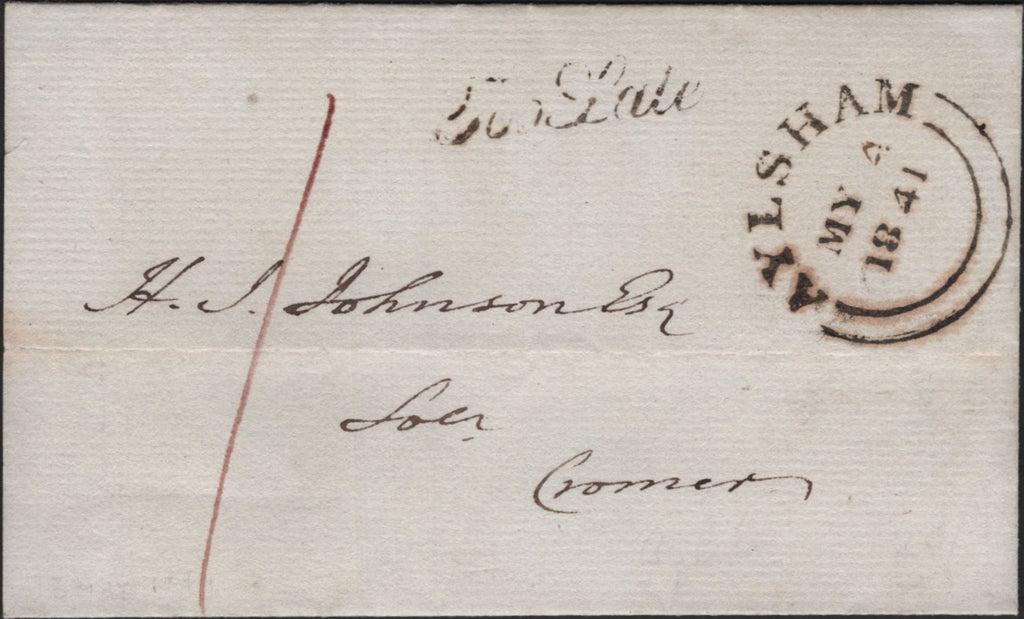 Too Late
AYLSHAM
MY 4
1841
H. J. Johnson Esq
Solr
Cromer